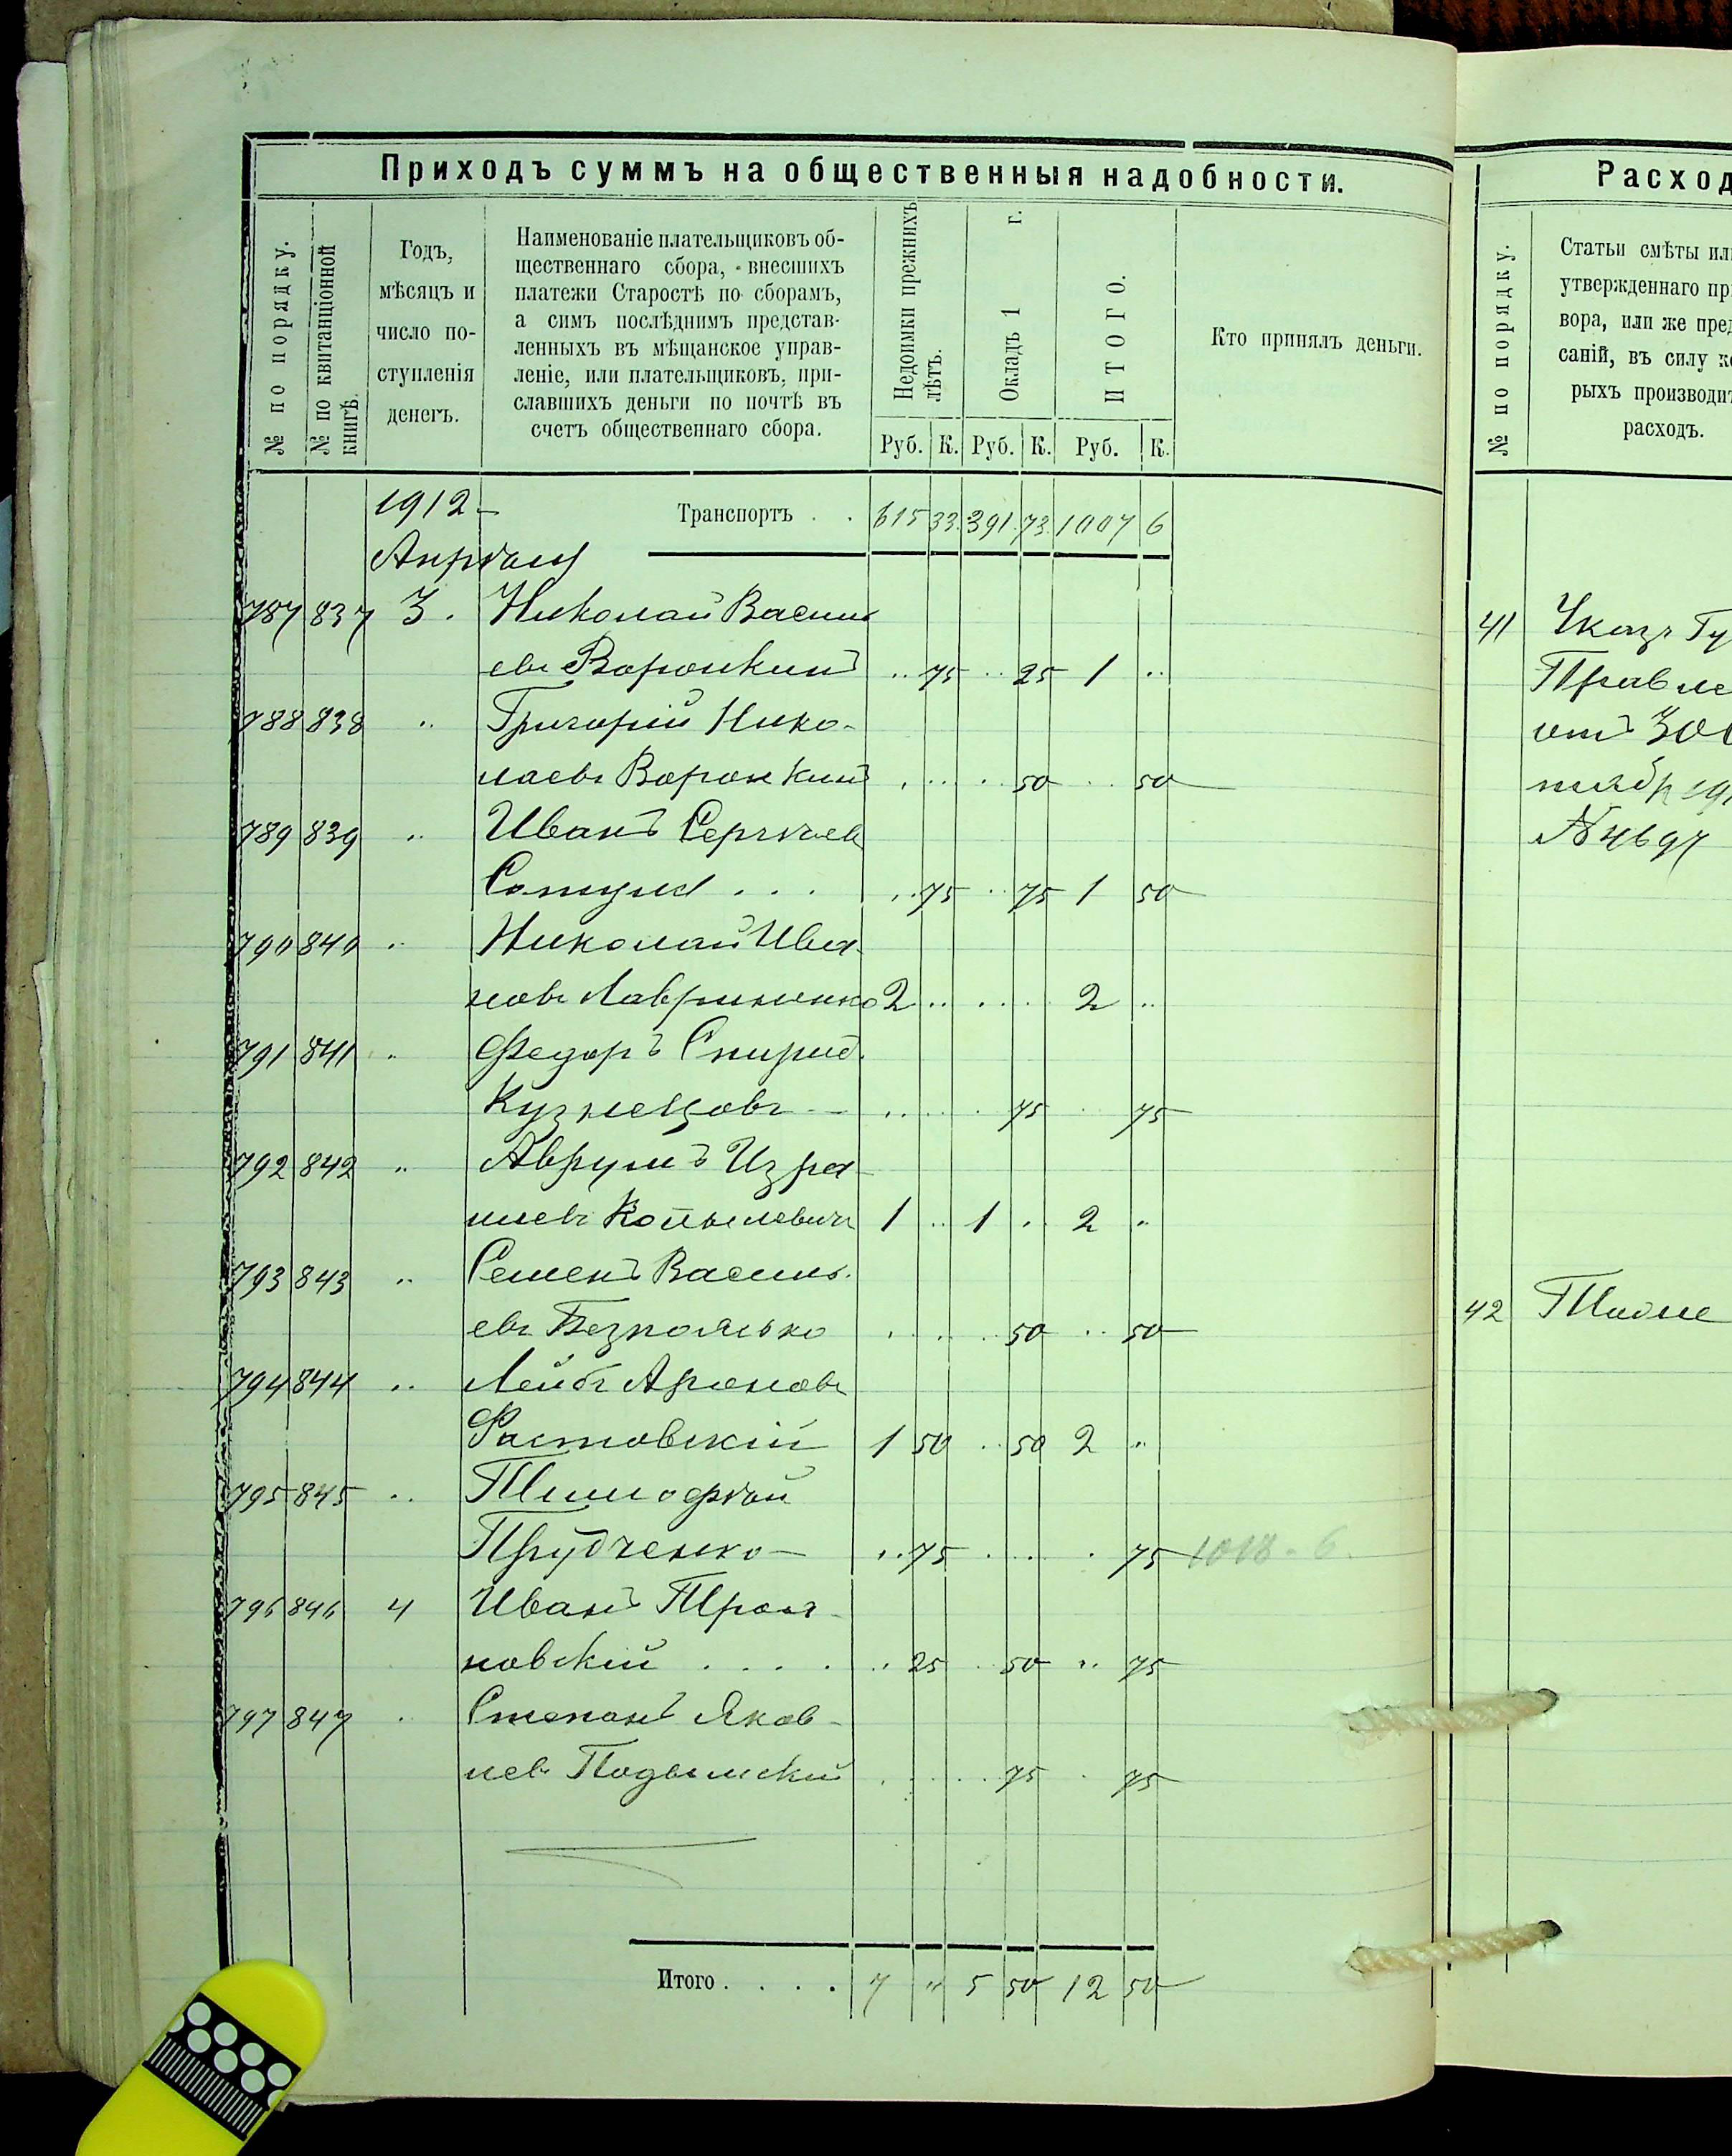 Приходъ суммъ на общественныя надобности.
№ по порядку.
№ по квитанціонной
книгѣ.
Годъ,
мѣсяцъ и
число по-
ступленія
денегъ.
Наименованіе плательщиковъ об-
щественнаго сбора, внесшихъ
платежи Старостѣ по сборамъ,
а симъ послѣднимъ представ-
ленныхъ въ мѣщанское управ-
леніе, или плательщиковъ, при-
славшихъ деньги по почтѣ въ
счетъ общественнаго сбора.
Недоимки прежнихъ
лѣтъ.
Окладъ 1 г.
ИТОГО.
Кто принялъ деньги.
Руб. К. Руб. К. Руб. К.
1912 Транспортъ . . 615 33 391 73 1007 6
Апрѣля
787 837 3. Николай Василь
евъ Воронкинъ .. 75 .. 25 1 ..
788 838 .. Григорій Нико-
лаевъ Воронкинъ . .. . 50 .. 50
789 839 .. Иванъ Сергѣевъ
. . . .. 75 .. 75 1 50
790 840 .. Николай Ива-
новъ Лавриненко 2 .. .. .. 2 ..
791 841 .. Федоръ Спирид.
Кузнецовъ — .. .. . 75 .. 75
792 842 .. Аврумъ Изра-
илевъ Копылевичъ 1 .. 1 .. 2 ..
793 843 .. Семенъ Василь-
евъ . .. .. 50 .. 50
794 844 .. Лейбъ Ароновъ
Фастовскій 1 50 .. 50 2 ..
795 845 .. Тимофѣй
Прудченко — .. 75 . .. . 75 1018 - 6.
796 846 4 Иванъ Троя-
новскій . . . . .. 25 .. 50 .. 75
797 847 . Степанъ Яков-
лев. Подымскій . .. .. 75 . 75
Итого . . . . 7 " 5 50 12 50
Расход
№ по порядку.
Статьи смѣты ил
утвержденнаго пр
вора, или же пред
саній, въ силу ко
рыхъ производит
расходъ.
41 Указъ Гу
Правле
отъ 30
тября 191
№ 4697
42 Тоже